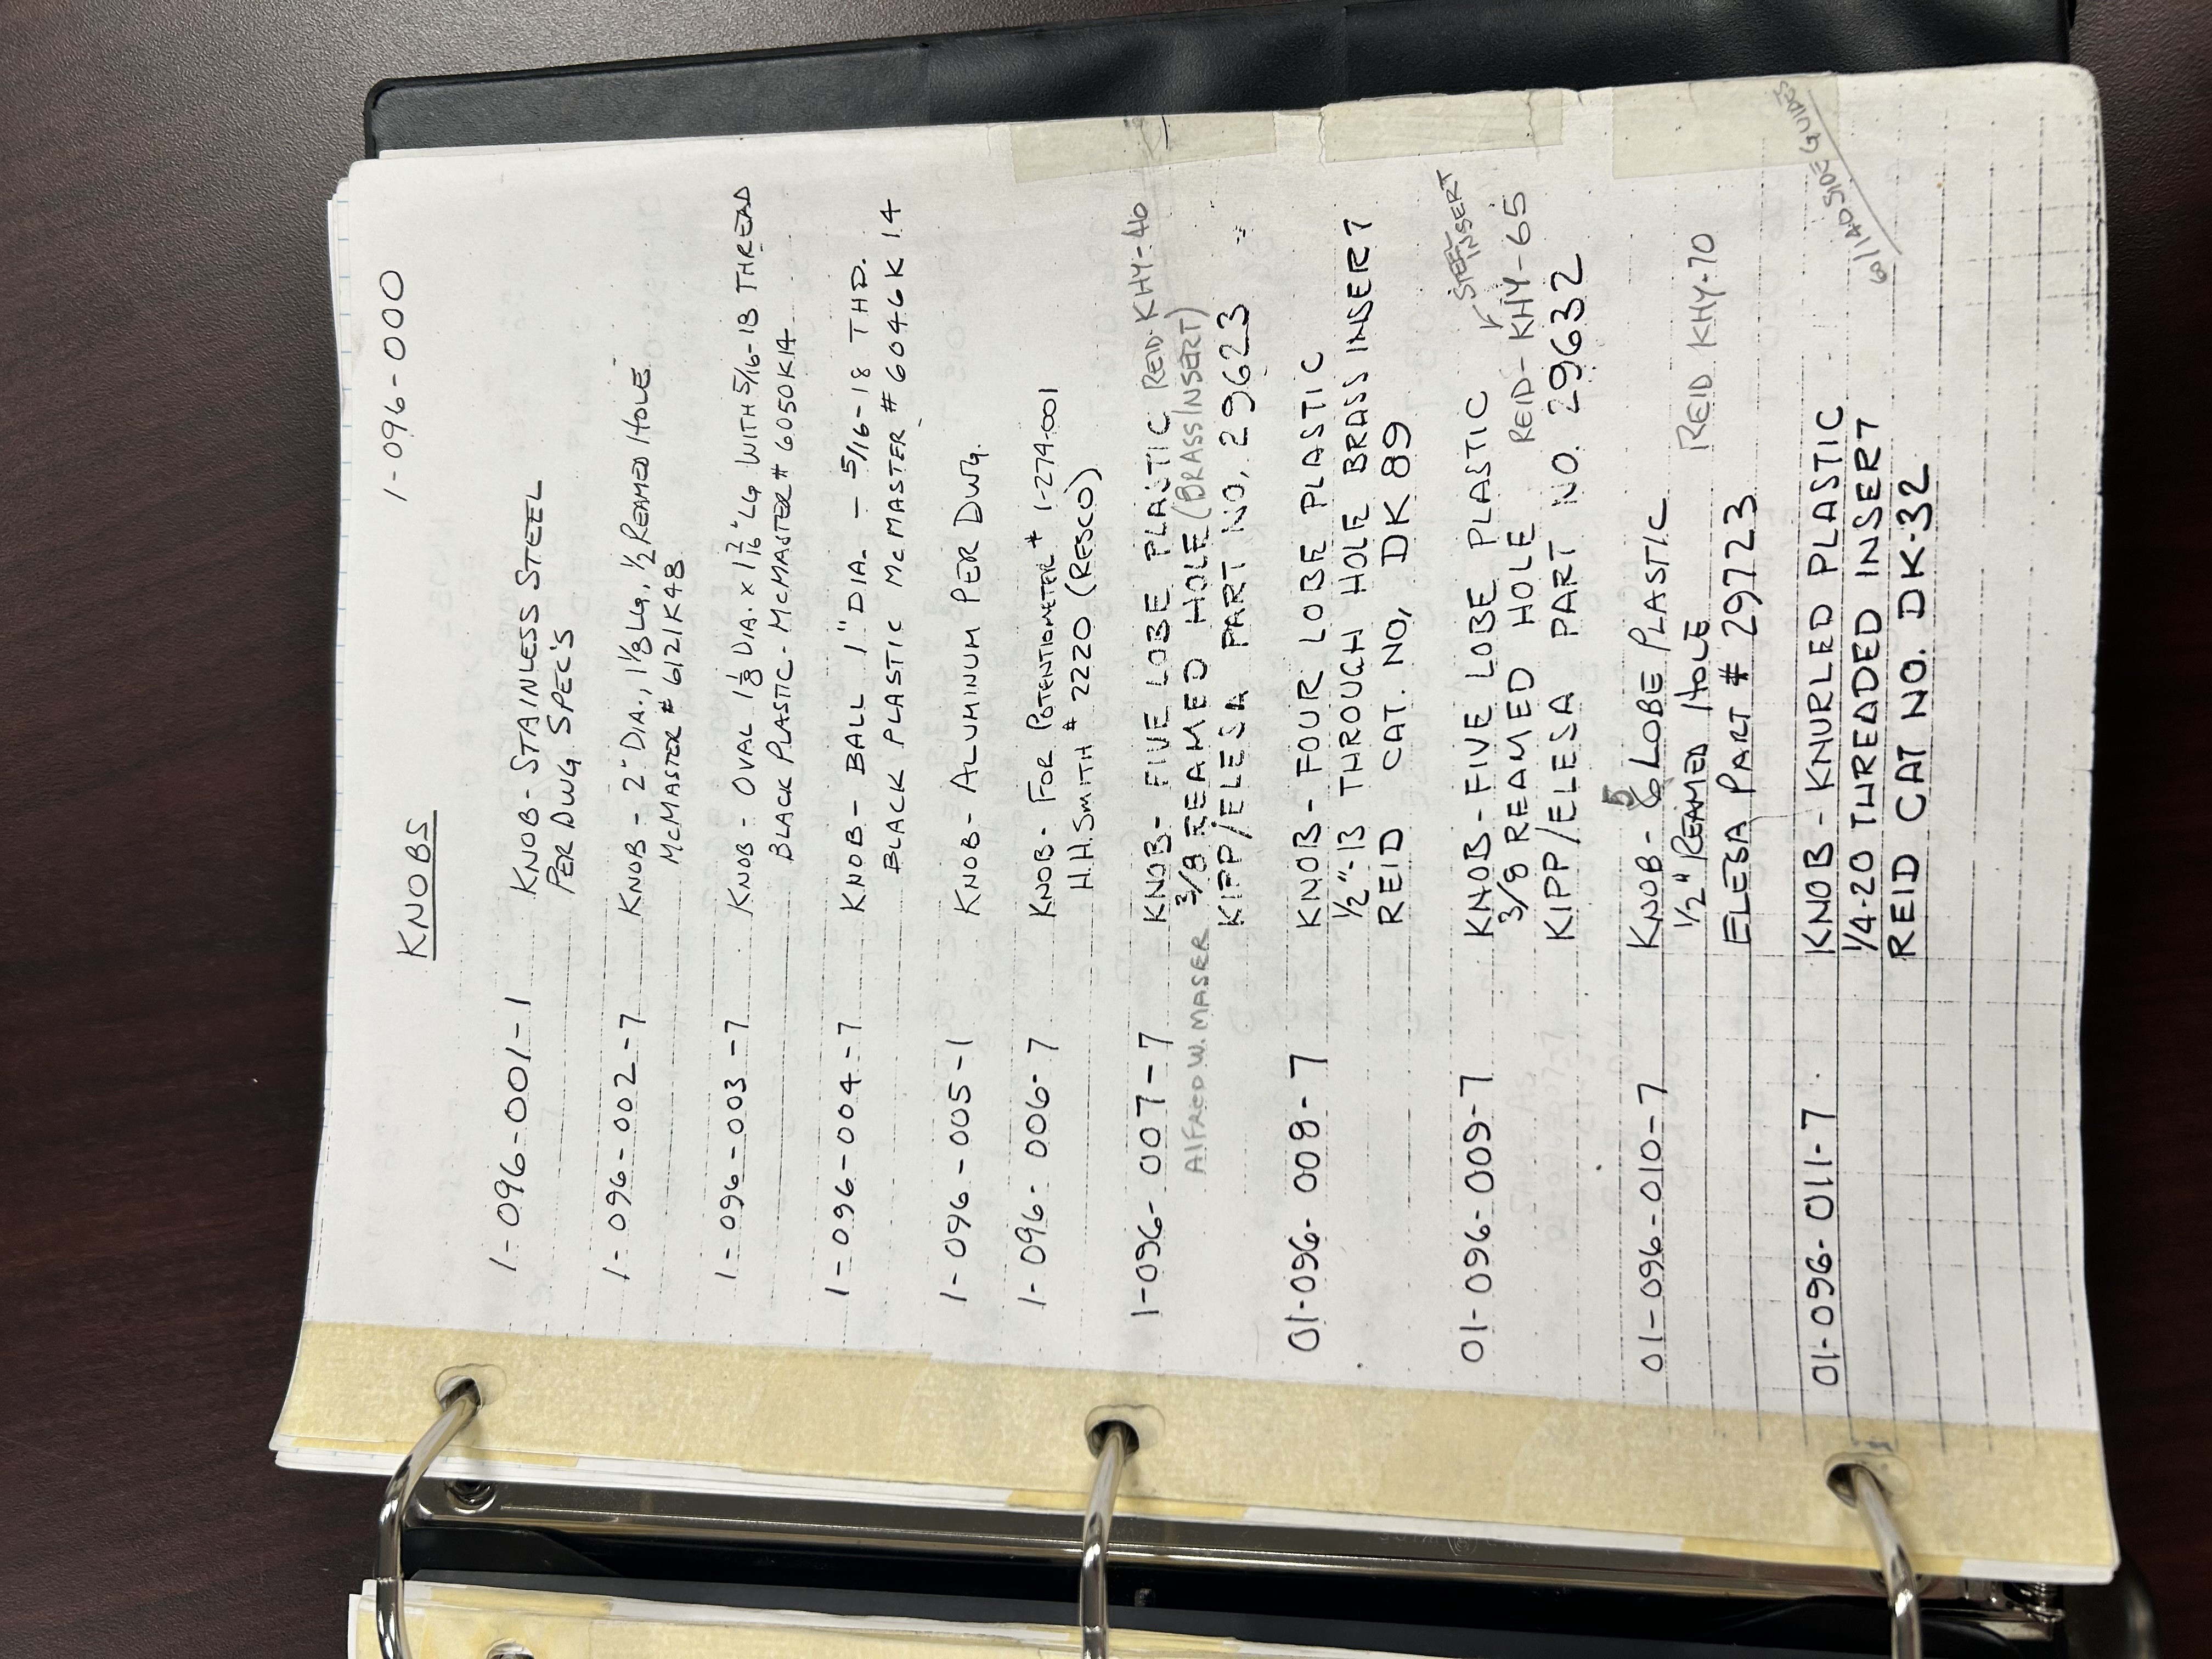 1-096-000
KNOBS
1-096-001-1 KNOB-STAINLESS STEEL
PER DWG SPEC'S
1-096-002-7 KNOB - 2" DIA., 1 1/8 LG, 1/2 REAMED HOLE
MCMASTER # 6121K48
1-096-003-7 KNOB - OVAL 1 1/8 DIA. x 1 3/16" LG WITH 5/16-18 THREAD
BLACK PLASTIC - MCMASTER # 6050K14
1-096-004-7 KNOB - BALL 1" DIA. - 5/16-18 THD.
BLACK PLASTIC MCMASTER # 6046K14
1-096-005-1 KNOB - ALUMINUM PER DWG.
1-096-006-7 KNOB - FOR POTENTIOMETER # 1-274-001
H.H. SMITH # 2220 (RESCO)
1-096-007-7 KNOB - FIVE LOBE PLASTIC REID-KHY-46
ALFRED W. MASER 3/8 REAMED HOLE (BRASS INSERT)
KIPP/ELESA PART NO. 29623
01-096-008-7 KNOB - FOUR LOBE PLASTIC
1/2"-13 THROUGH HOLE BRASS INSERT
REID CAT. NO, DK 89
STEEL
INSERT
01-096-009-7 KNOB - FIVE LOBE PLASTIC
3/8 REAMED HOLE REID-KHY-65
KIPP/ELESA PART NO. 29632
5
01-096-010-7 KNOB - 6 LOBE PLASTIC
1/2" REAMED HOLE REID KHY-70
ELESA PART # 29723
01-096-011-7 KNOB - KNURLED PLASTIC
1/4-20 THREADED INSERT 60/140 SIDE GUIDES
REID CAT NO. DK-32